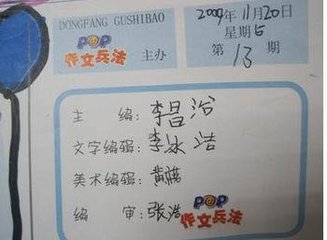 DONGFANG GUSHIBAO
POP
作文兵法 主办
2009年11月20日
星期5
第13期
主 编:李昌浴
文字编辑:李冰洁
美术编辑:黄
编 审:张浩
POP
作文兵法